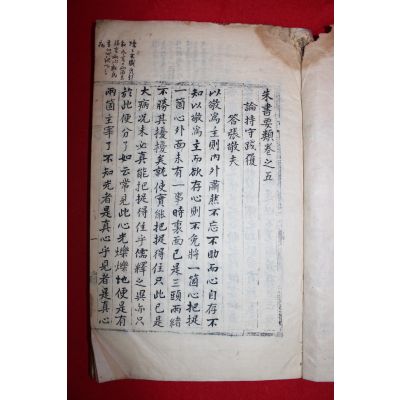 朱書要類卷之五
論持守踐履
答張敬夫
以敬爲主則內外肅然不忘不助而心自存不
知以敬爲主而欲存心則不免將一箇心把捉
一箇心外面未有一事時裏面已是三頭兩緒
不勝其擾擾矣就使實能把捉得住只此已是
大病況未必真能把捉得住乎儒釋之異亦只
於此便分了如云常見此心光爍爍地便是有
兩箇主宰了不知光者是真心乎見者是真心